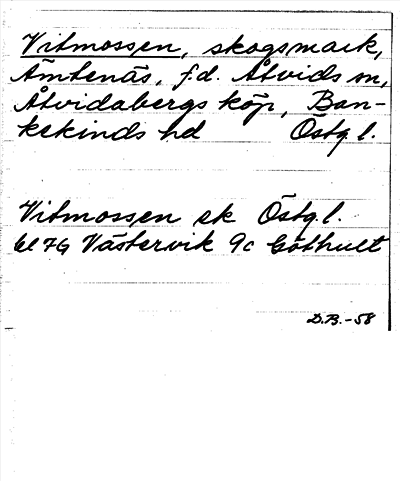 Vitmossen, skogsmark,
Ämtenäs, f.d. Åtvids sn,
Åtvidabergs köp, Ban-
kekinds hd Östg l.
Vitmossen ek Östg. l.
bl 7G Västervik 9c Göthult
D.B.-58